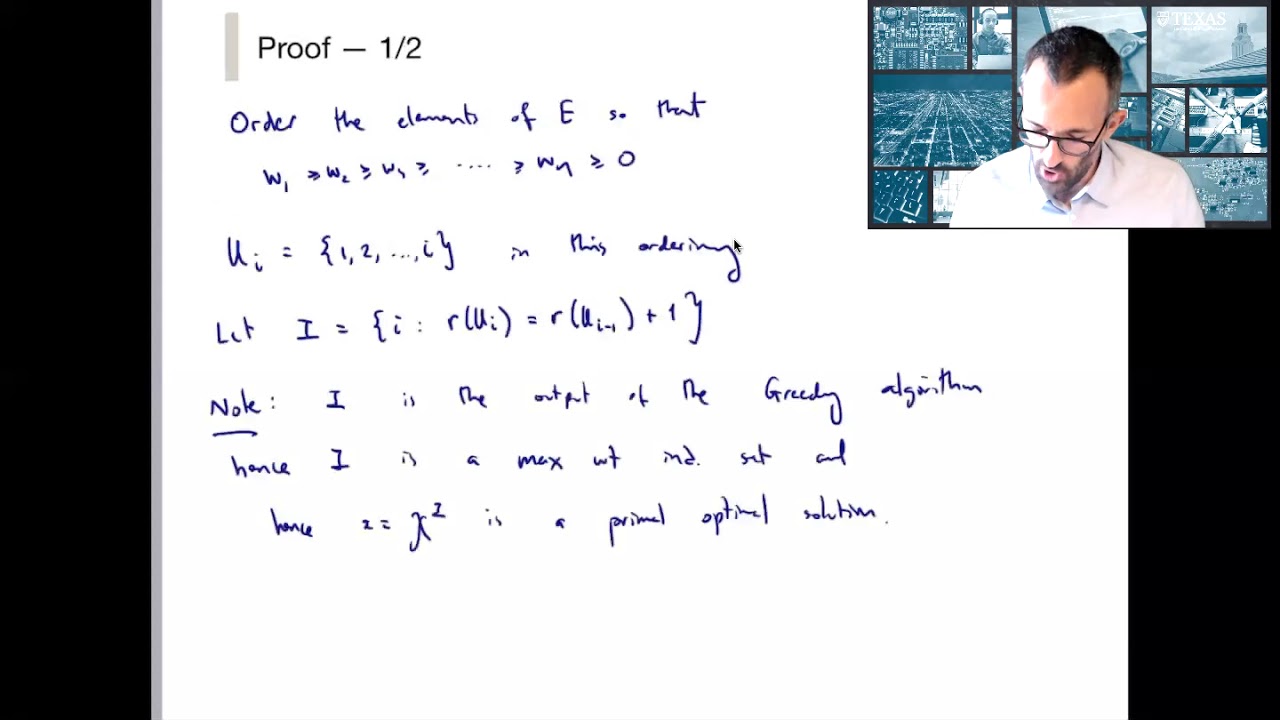 Proof — 1/2
TEXAS
Order the elements of E so that
w₁ ≥ w₂ ≥ w₃ ≥ ···· ≥ wₙ ≥ 0
Uᵢ = {1, 2, ..., i} in this ordering
Let I = {i : r(Uᵢ) = r(Uᵢ₋₁) + 1}
Note: I is the output of the Greedy algorithm
hence I is a max wt ind. set and
hence x = χᴵ is a primal optimal solution.